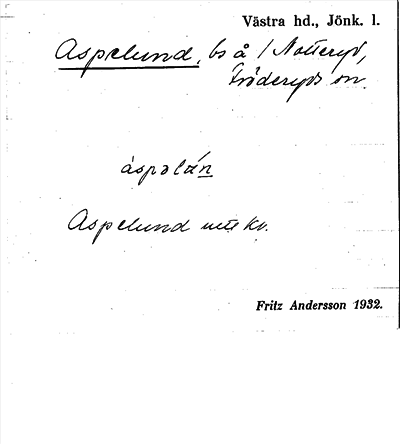 Västra hd., Jönk. l.
Aspelund, bs å 1 Notteryd,
Fröderyds sn.
áspəlán
Aspelund
Fritz Andersson 1932.